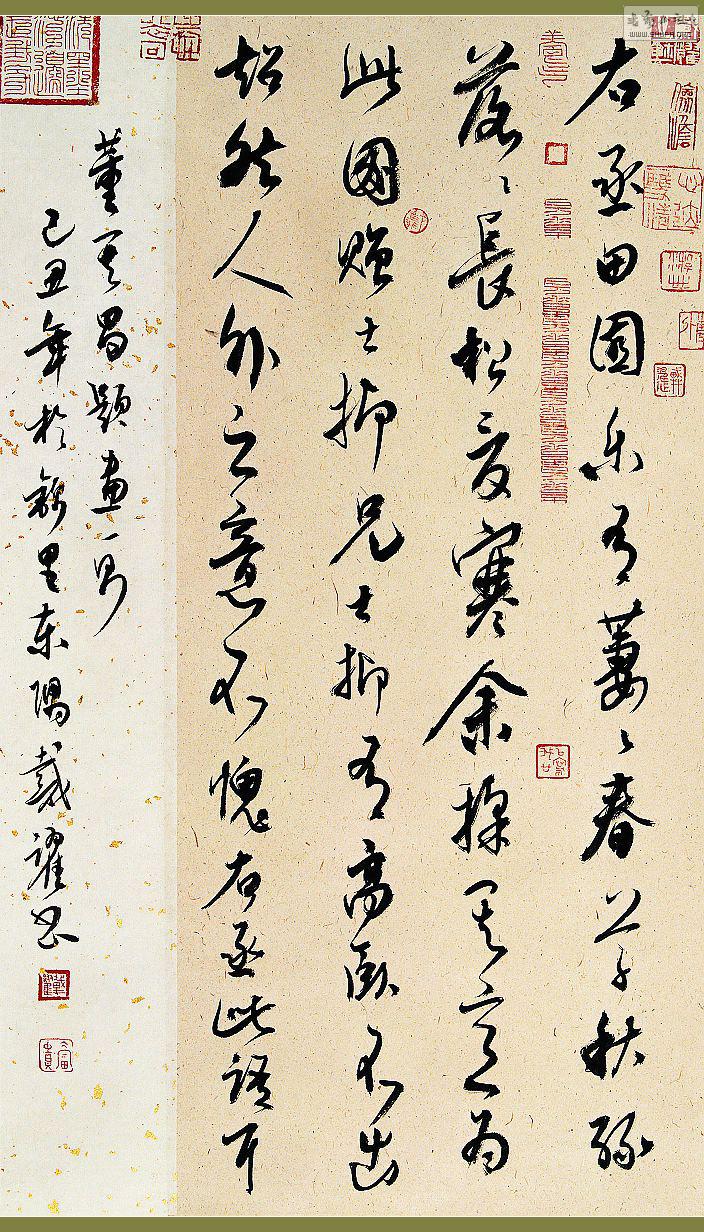 右丞田園樂有萋萋春草秋綠
落落長松夏寒余採其意為
此圖贈士抑兄士抑有高臥不出
超然人外之意不愧右丞此語耳
董其昌題畫一則
己丑年於錦里東隅戴書